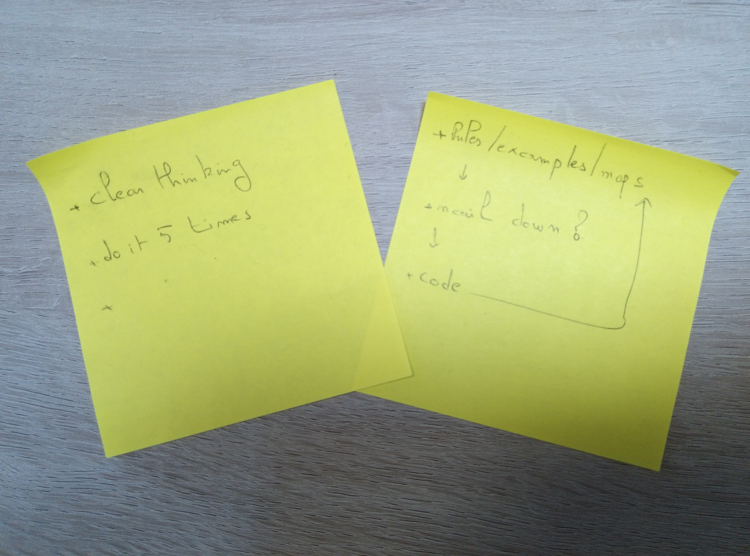 + clear thinking
+ do it 5 times
+
+ Rules/examples/maps
↓
+ nail down?
↓
+ code